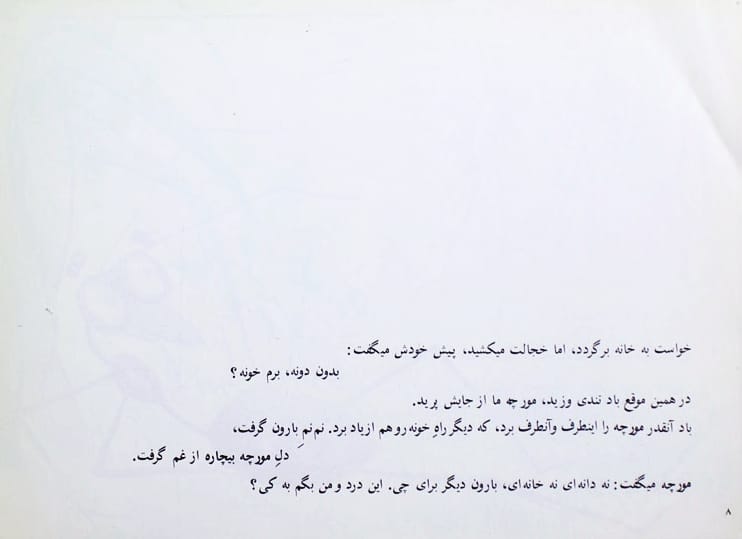 خواست به خانه برگردد، اما خجالت میکشید، پیش خودش میگفت:
بدون دونه، برم خونه؟
در همین موقع باد تندی وزید، مورچه ما از جایش پرید.
باد آنقدر مورچه را اینطرف وآنطرف برد، که دیگر راهِ خونه رو هم از یاد برد. نم‌نمِ بارون گرفت،
دلِ مورچه بیچاره از غم گرفت.
مورچه میگفت: نه دانه‌ای نه خانه‌ای، بارون دیگر برای چی. این درد و من بگم به کی؟
۸